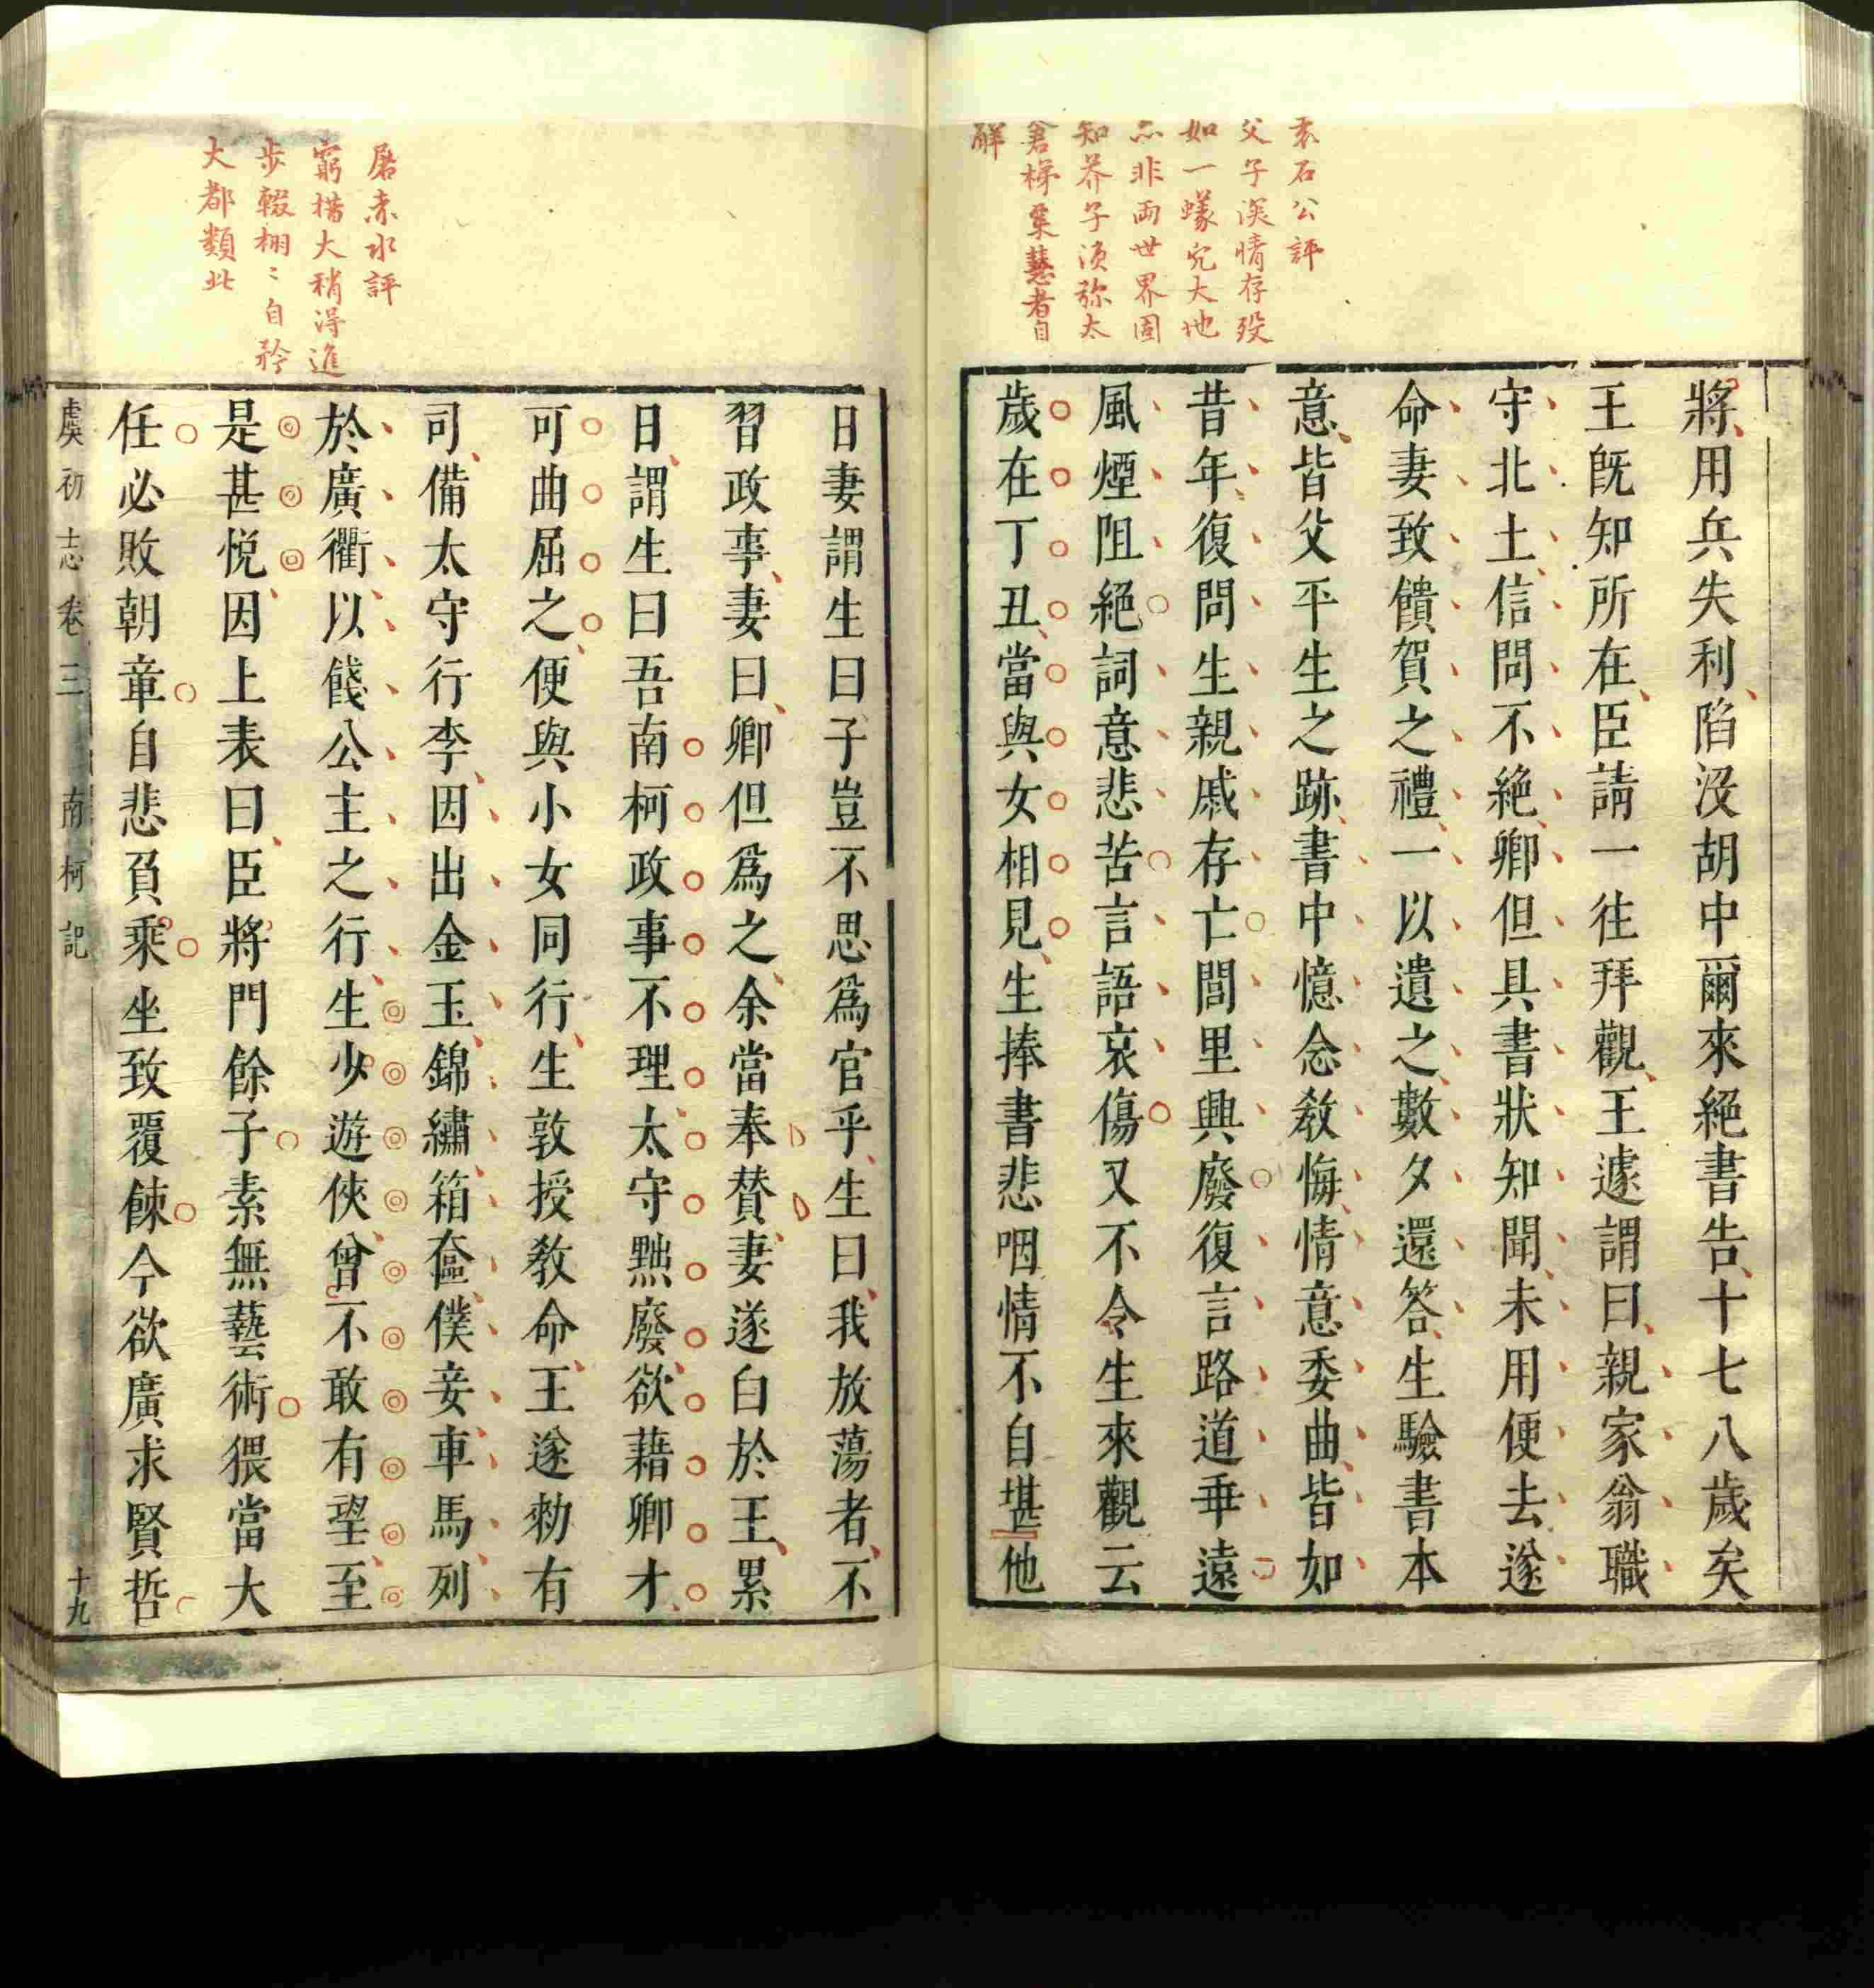 袁石公評
父子深情存殁
如一蟻宂大地
亦非兩世界固
知芥子湏弥太
倉梯粟慧者自
解
將用兵失利陷没胡中爾來絕書告十七八歲矣
王旣知所在臣請一往拜觀王遽謂曰親家翁職
守北土信問不絕卿但具書狀知聞未用便去遂
命妻致饋賀之禮一以遺之數夕還答生驗書本
意皆父平生之跡書中憶念教悔情意委曲皆如
昔年復問生親戚存亡閭里興廢復言路道乖遠
風煙阻絕詞意悲苦言語哀傷又不令生來觀云
歲在丁丑當與女相見生捧書悲咽情不自堪他
屠赤水評
窮措大稍淂進
步輟栩〻自矜
大都類此
日妻謂生曰子豈不思爲官乎生曰我放蕩者不
習政事妻曰卿但爲之余當奉贊妻遂白於王累
日謂生曰吾南柯政事不理太守黜廢欲藉卿才
可曲屈之便與小女同行生敦授敎命王遂勑有
司備太守行李因出金玉錦繡箱奩僕妾車馬列
於廣衢以餞公主之行生少遊俠曾不敢有望至
是甚悅因上表曰臣將門餘子素無藝術猥當大
任必敗朝章自悲負乘坐致覆餗今欲廣求賢哲
虞初志卷三 南柯記 十九